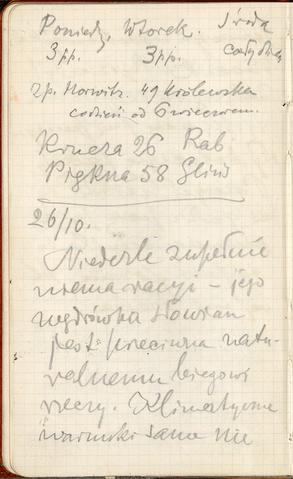 Poniedz, Wtorek. Środa
3 pp. 3 pp. cały dzień
zp. Horwitz. 49 Królewska
codzień od 6 wieczorem.
Krucza 26 Rab
Piękna 58 Glinś
26/10.
Niederle zupełnie
niema racyi – jego
wędrówka Słowian
jest przeciwna natu-
ralnemu biegowi
rzeczy. Klimatyczne
warunki same nie